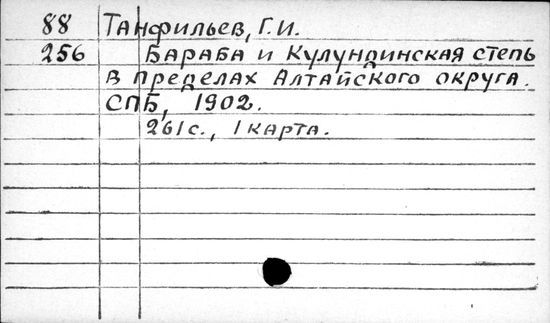 88 Танфильев, Г.И.
256 Бараба и Кулундинская степь
в пределах Алтайского округа.
СПБ, 1902.
261с., 1 карта.